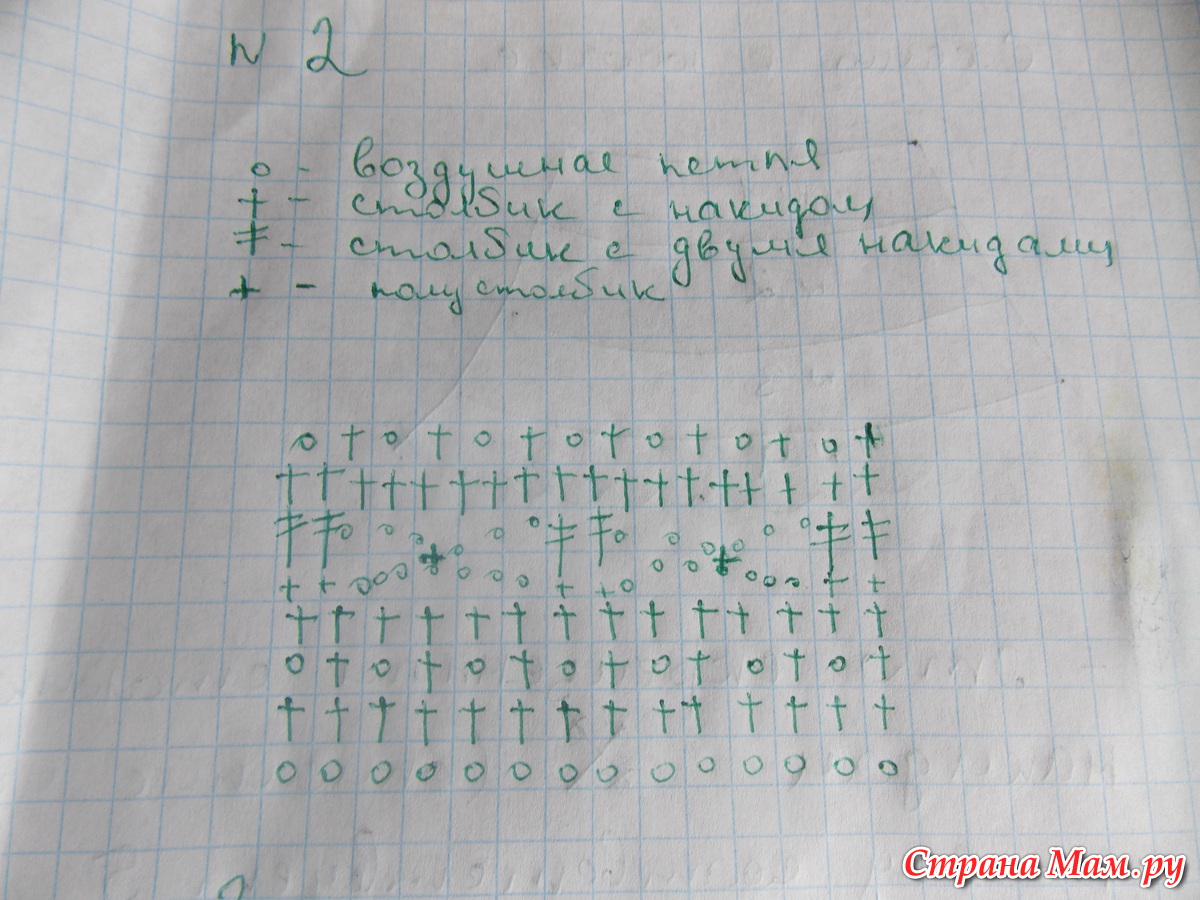 N 2
о - воздушная петля
† - столбик с накидом
‡ - столбик с двумя накидами
+ - полустолбик
о † о † о † о † о † о † о †
† † † † † † † † † † † † † † † † † †
† † † † † † † † † † † † † †
о † о † о † о † о † о † о †
† † † † † † † † † † † † † †
о о о о о о о о о о о о о о
Страна Мам.ру